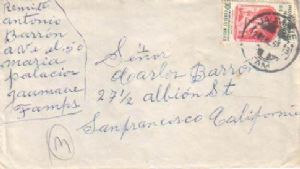 Remite
antonio
Barrón
maria
palacior
Jaumave
Tamps
Señor
Carlos Barron
27½ Albión St
Sanfrancisco California
3